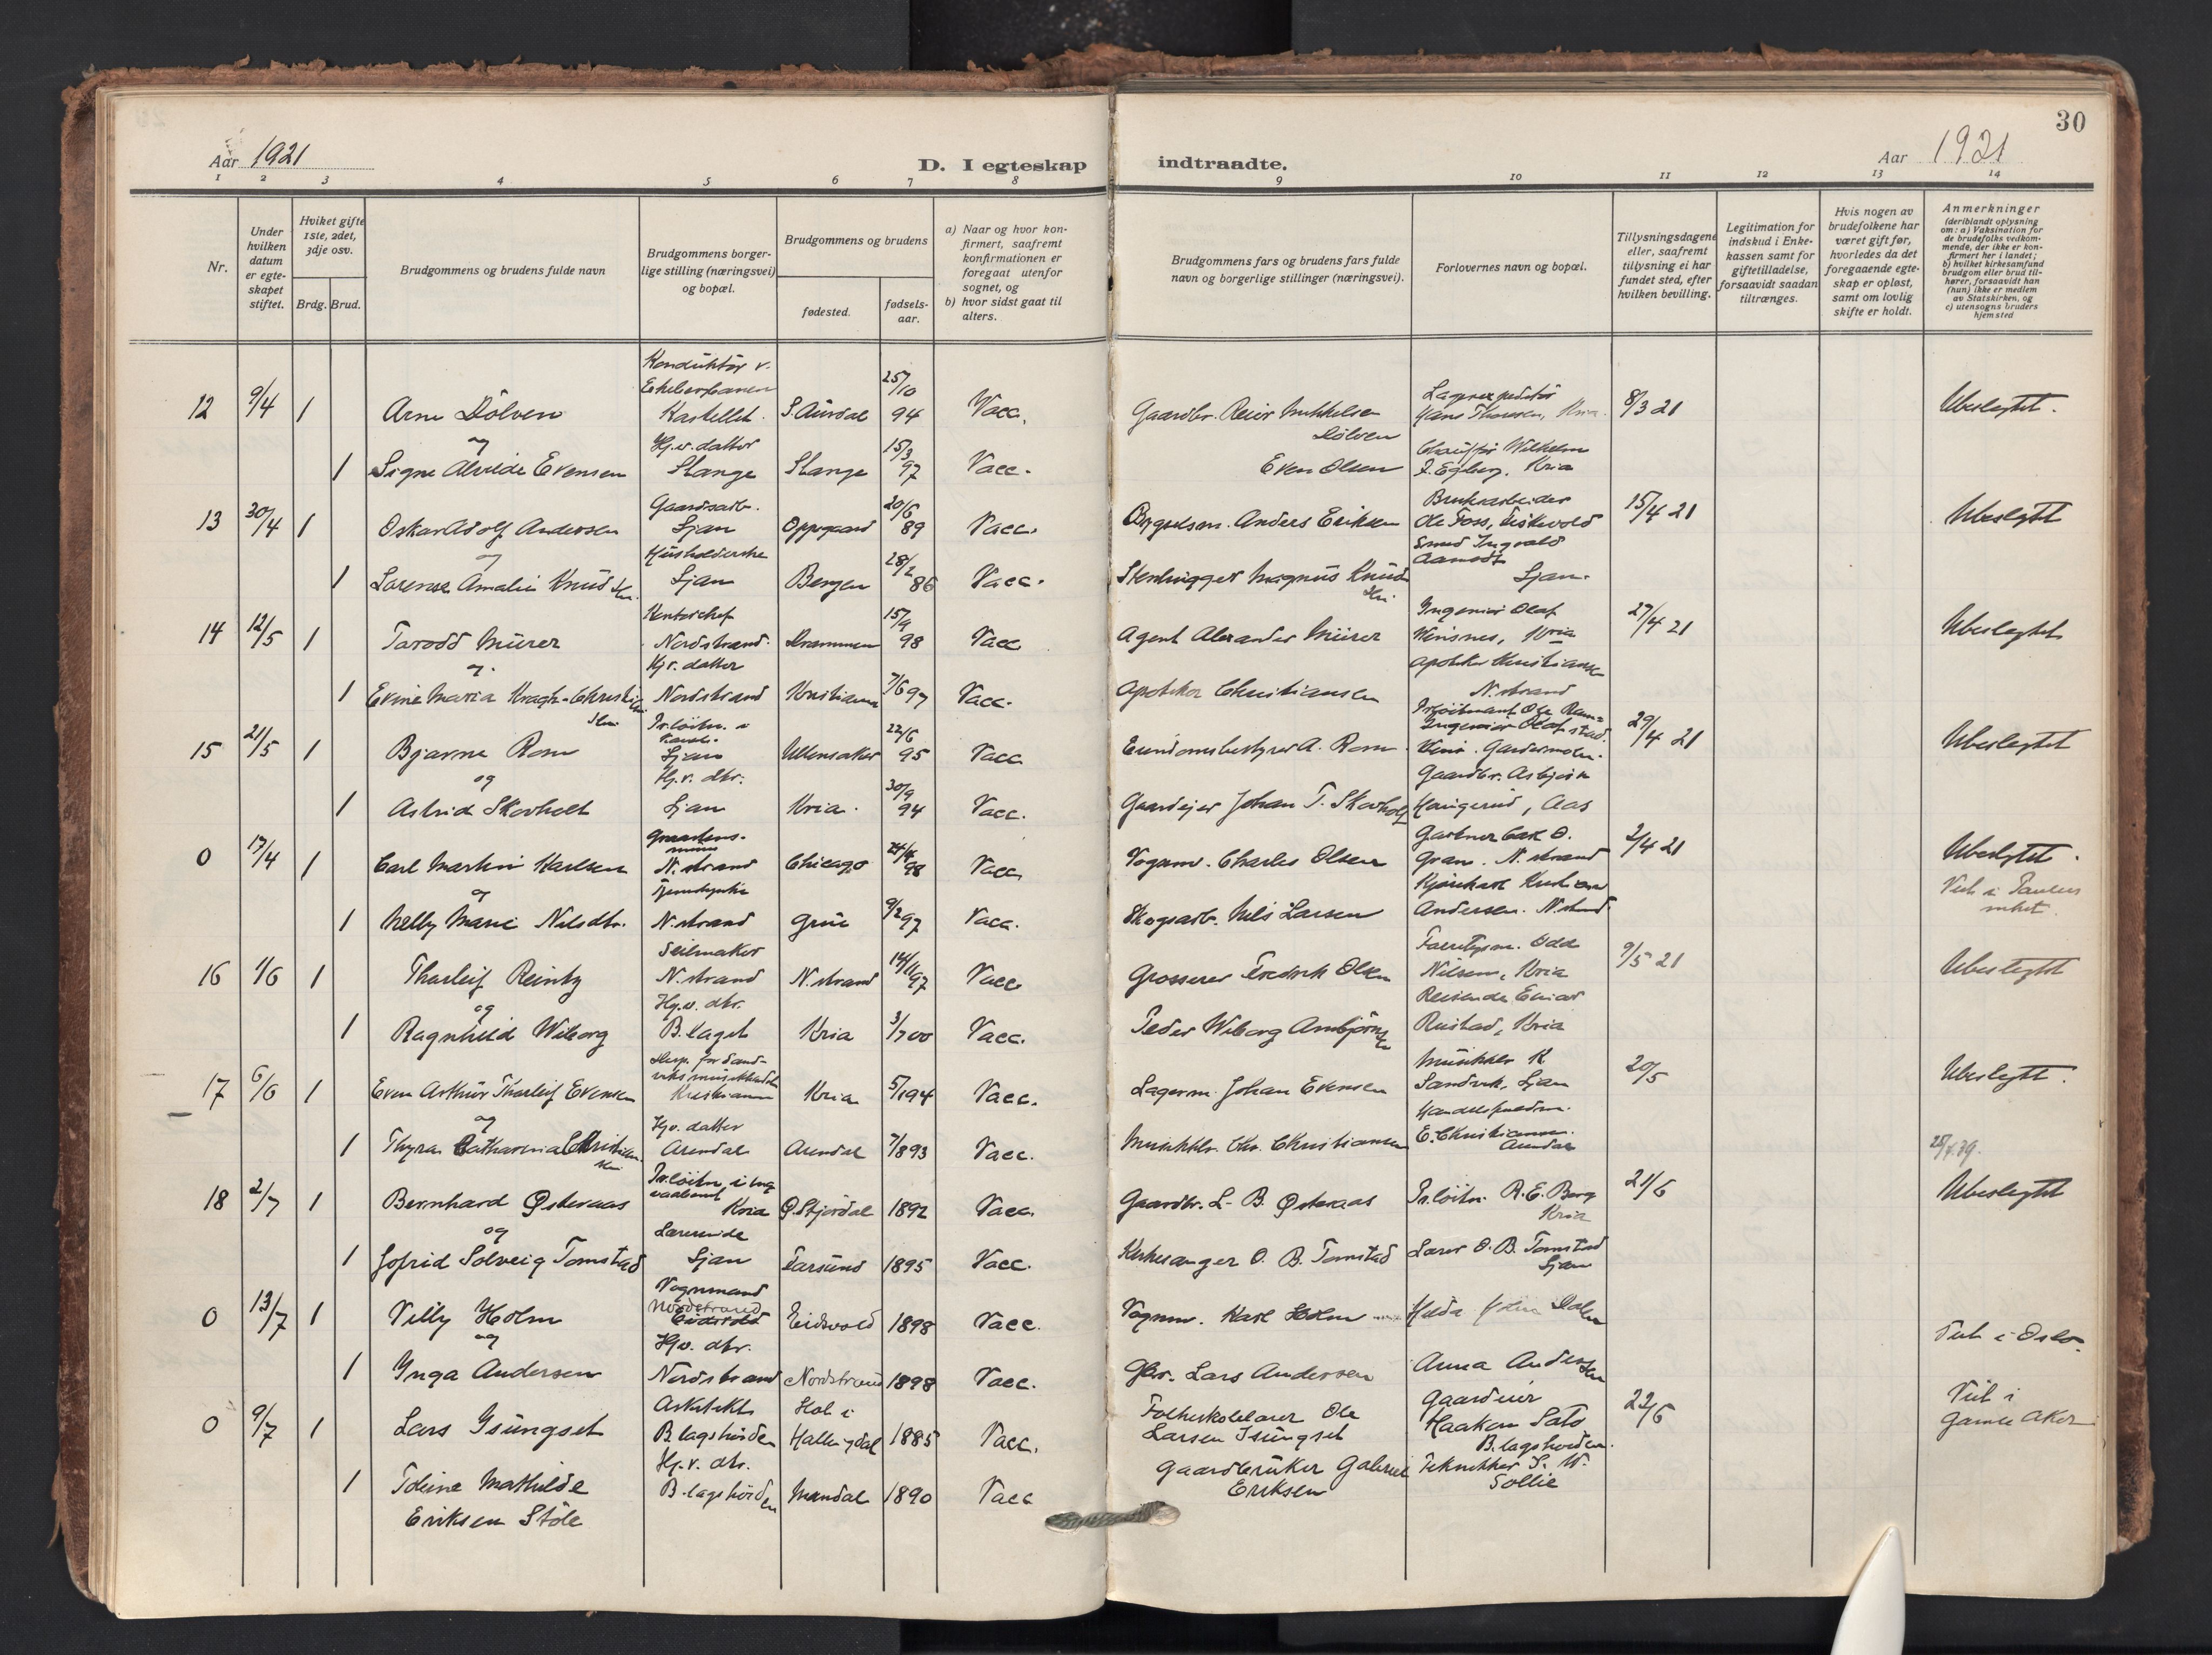 30
Aar 1921
D. I egteskap indtraadte.
Aar 1921
1 2 3 4 5 6 7 8 9 10 11 12 13 14
Nr.
Under hvilken datum er egteskapet stiftet.
Hviket gifte 1ste, 2det, 3dje osv.
Brdg. Brud.
Brudgommens og brudens fulde navn
Brudgommens borgerlige stilling (næringsvei) og bopæl.
Brudgommens og brudens
fødested.
fødselsaar.
a) Naar og hvor konfirmert, saafremt konfirmationen er foregaat utenfor sognet, og
b) hvor sidst gaat til alters.
Brudgommens fars og brudens fars fulde navn og borgerlige stillinger (næringsvei).
Forlovernes navn og bopæl.
Tillysningsdagene eller, saafremt tillysning ei har fundet sted, efter hvilken bevilling.
Legitimation for indskud i Enkekassen samt for giftetilladelse, forsaavidt saadan tiltrænges.
Hvis nogen av brudefolkene har været gift før, hvorledes da det foregaaende egteskap er opløst, samt om lovlig skifte er holdt.
Anmerkninger
(deriblandt oplysning om: a) Vaksination for de brudefolks vedkommende, der ikke er konfirmert her i landet; b) hvilket kirkesamfund brudgom eller brud tilhører, forsaavidt han (hun) ikke er medlem av Statskirken, og c) utensogns bruders hjemsted
12 9/4 1 Arne Dölven Konduktör v. Ekebergbanen Kastellet. S. Aurdal 25/10 94 Vacc. Gaardbr. Reier Mikkelsen Dölven Hans Thoresen, Kria. 8/3 21 Ubeslegtet.
og
1 Signe Alvilde Evensen Hj.v. datter Stange Stange 15/3 97 Vacc. Even Olsen Chauffør Wilhelm Kria
13 30/4 1 Oskar Adolf Andersen Gaardsarb. Ljan Oppegaard 20/6 89 Vacc. Bygselsm. Anders Eriksen Brukarbeider Ole Foss, 15/4 21 Ubeslegtet
og
1 Lorense Amalie Knudsen Husholderske Ljan Bergen 28/2 86 Vacc. Stenhugger Magnus Knudsen Smed Ingvald Aamodt Ljan.
14 12/5 1 Tarodd Mürer Kontorchef Nordstrand Drammen 15/9 98 Vacc Agent Alexander Mürer Ingeniør Olaf Kria 27/4 21 Ubeslegtet
og
1 Evine Maria Kragh-Christiansen Hj.v. datter Nordstrand Kristiania 7/6 97 Vacc. Apotheker Christiansen Apotheker Kristiansen N. strand
15 21/5 1 Bjarne Rom Pr.löitn. i Ljan Ullensaker 22/6 95 Vacc Eiendomsbestyrer A. Rom Gardermoen. 29/4 21 Ubeslegtet
og
1 Astrid Skovholt Hj.v. dtr. Ljan Kria. 30/9 94 Vacc. Gaardejer Johan T. Skovholt Gaardbr. Asbjörn Haugerud, Aas
0 17/4 1 Carl Martin Karlsen N. strand Chicago 98 Vacc. Vognm. Charles Olsen Gartner Carl O. Gran. N. strand 2/4 21 Ubeslegtet.
og
1 Nelly Marie Nilsdtr. N. strand Grue 9/2 97 Vacc. Skogsarb. Nils Larsen Kjörekarl Kristian Andersen. N. strand. Viet i Paulus
16 1/6 1 Tharleif Reintz Seilmaker N. strand N. strand 14/11 97 Vacc Grosserer Fredrik Olsen Odd Nilsen, Kria 9/5 21 Ubeslegtet
og
1 Ragnhild Wiborg Hj.v. dtr. B. laget Kria 3/7 00 Vacc. Peder Wiborg Arnbjörnsen Reisende Einar Rustad, Kria
17 6/6 1 Even Arthur Tharleif Evensen Disp. for Sandviks musikhandel Kristiania Kria 5/1 94 Vacc. Lagerm. Johan Evensen Musikhdlr. K Sandvik, Ljan 20/5 Ubeslegtet.
og
1 Thyra Catharina Christiansen Hj.v. datter Arendal Arendal 7/8 93 Vacc. Musikhdlr. Chr. Christiansen E. Christiansen. Arendal
18 2/7 1 Bernhard Østeraas Pr.löitn. i Kria Ø. Stjørdal 1892 Vacc. Gaardbr. L. B. Østeraas Pr.löitn. R. E. Berg Kria 21/6 Ubeslegtet
og
1 Gofrid Solveig Tomstad Lærerinde Ljan Farsund 1895 Vacc. Kirkesanger O. B. Tomstad Lærer O. B. Tomstad Ljan
0 13/7 1 Villy Holm Vognmand Nordstrand Eidsvold Eidsvold 1898 Vacc. Vognm. Karl Holm Hilda Dalen Viet i Oslo.
og
1 Inga Andersen Hj.v. dtr. Nordstrand Nordstrand 1898 Vacc. Gbr. Lars Andersen Anna Andersen
0 9/7 1 Lars Isungset Arkitekt B. lagshöiden Hol i Hallingdal 1885 Vacc. Folkeskolelærer Ole Larsen Isungset Gaardeier Haakon Sato B. lagshöiden. 22/6 Viet i Gamle Aker
1 Toline Mathilde Eriksen Stöle Hj.v. dtr. B. lagshöiden Mandal 1890 Vacc Gaardbruker Gabriel Eriksen Tekniker S. W. Sollie